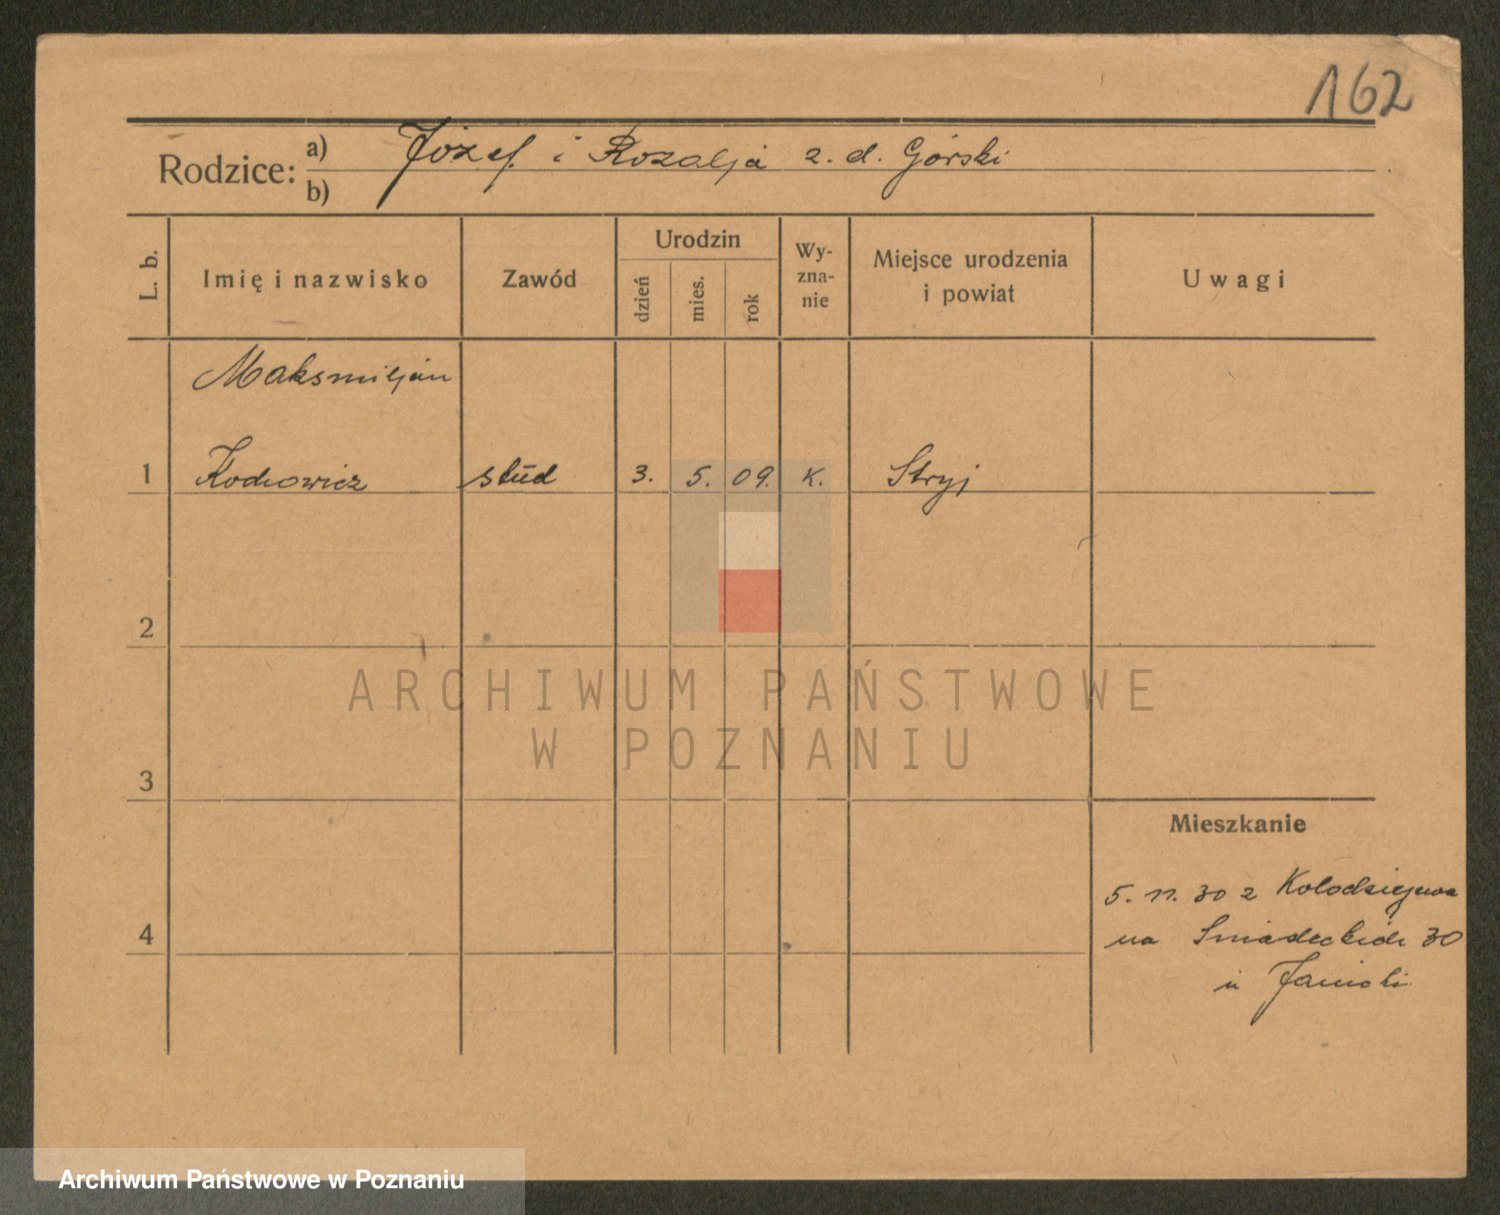 162
Rodzice: a) Józef i Rozalja z. d. Górski
b)
L. b.
Imię i nazwisko
Zawód
Urodzin
dzień
mies.
rok
Wy-
zna-
nie
Miejsce urodzenia
i powiat
Uwagi
Maksmiljan
1 stud 3. 5. 09. K. Stryj
2
3
4
Mieszkanie
5. 11. 30 z Kołodziejewa
na Sniadeckich 30
u Janicki
ARCHIWUM PAŃSTWOWE
W POZNANIU
Archiwum Państwowe w Poznaniu